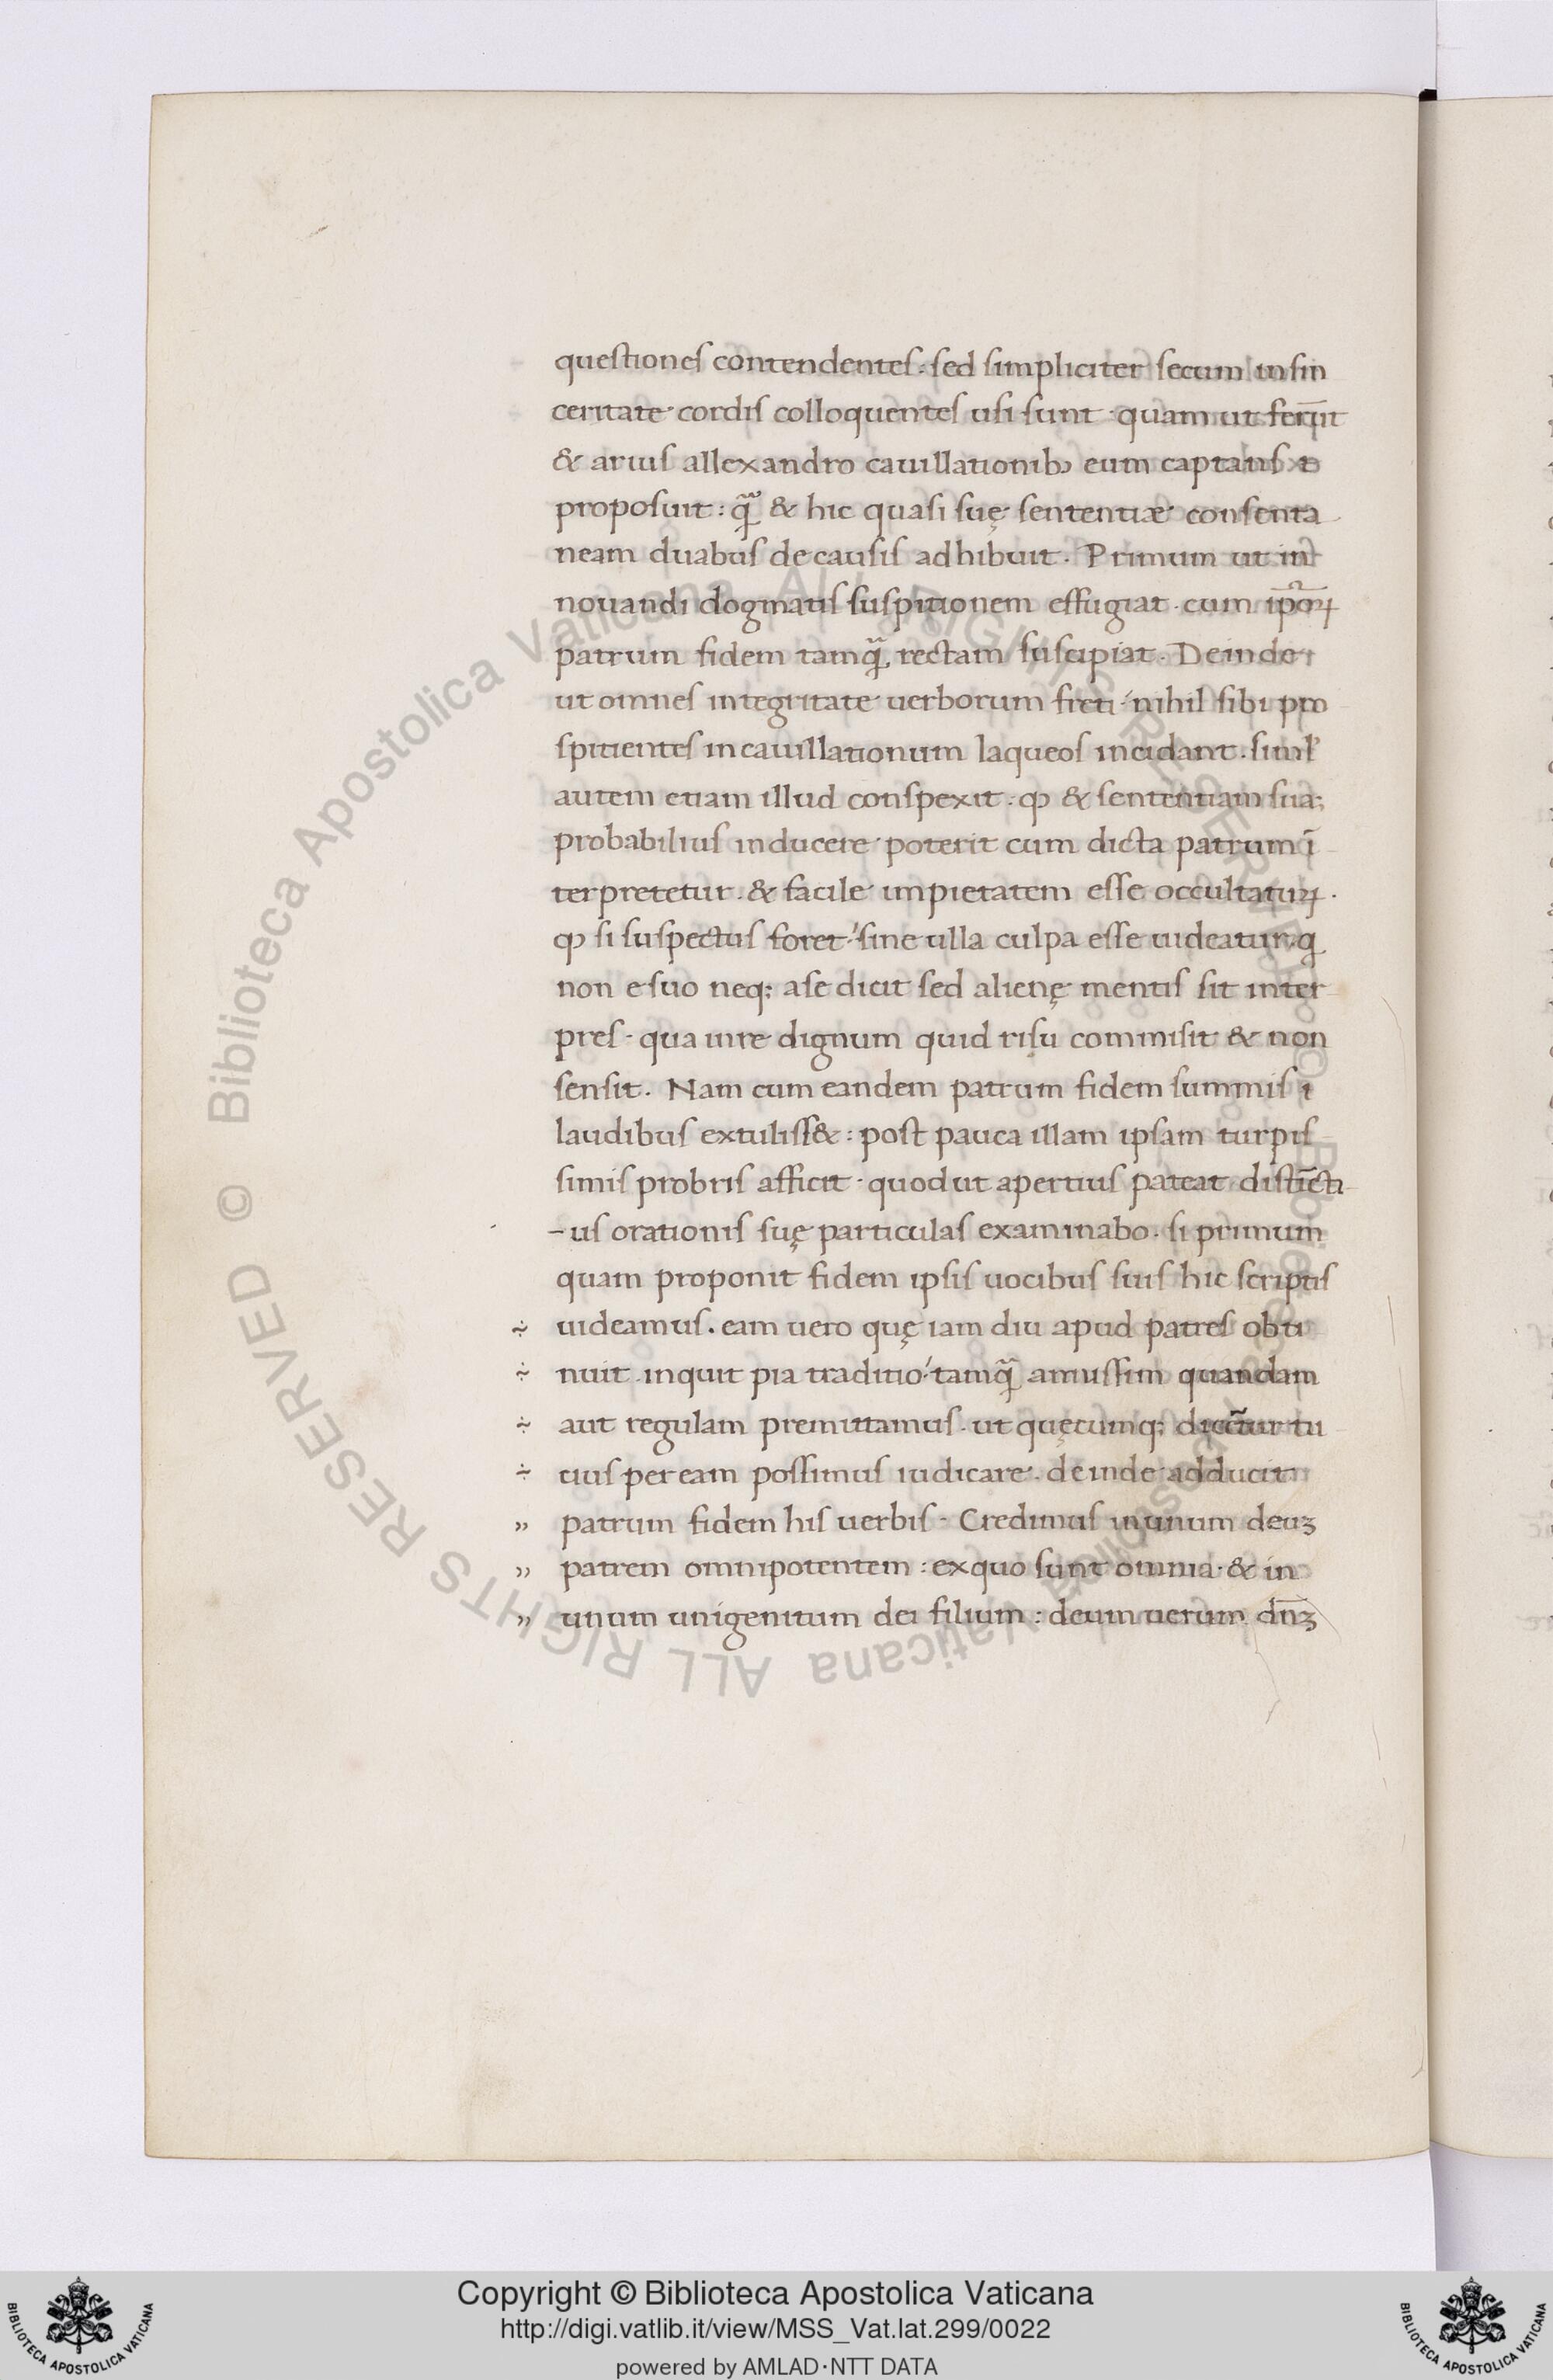 questiones contendentes: sed simpliciter secum in sin
ceritate cordis colloquentes usi sunt · quam ut ferūt
& arius allexandro cauillationibꝫ eum captans
proposuit: & hic quasi suę sententiæ consenta
neam duabus de causis adhibuit. Primum ut in
nouandi dogmatis suspitionem effugiat · cum ip̄oꝝ
patrum fidem tamꝙ̃ rectam suscipiat. Deinde
ut omnes integritate uerborum freti nihil sibi pro
spitientes in cauillationum laqueos incidant. simł
autem etiam illud conspexit · ꝙ & sententiam suaꝫ
probabilius inducere poterit cum dicta patrum ī
terpretetur. & facile impietatem esse occultatuꝝ.
ꝙ si suspectus foret sine ulla culpa esse uideatur q
non e suo neqꝫ a se dicit sed alienę mentis sit inter
pres · qua in re dignum quid risu commisit & non
sensit. Nam cum eandem patrum fidem summis
laudibus extuliss&: post pauca illam ipsam turpis
simis probris afficit · quod ut apertius pateat distīcti
-us orationis suę particulas examinabo. si primum
quam proponit fidem ipsis uocibus suis hic scriptis
÷ uideamus. eam uero quę iam diu apud patres obti
÷ nuit inquit pia traditio tamꝙ̃ amussim quandam
÷ aut regulam premittamus. ut quęcumqꝫ dicūtur tu
÷ tius per eam possimus iudicare. deinde adducit
" patrum fidem his uerbis · Credimus in unum deuꝫ
" patrem omnipotentem: ex quo sunt omnia · & in
" unum unigenitum dei filium: deum uerum. dn̄ꝫ
© Biblioteca Apostolica Vaticana ALL RIGHTS RESERVED © Biblioteca Apostolica Vaticana ALL RIGHTS RESERVED
Copyright © Biblioteca Apostolica Vaticana
http://digi.vatlib.it/view/MSS_Vat.lat.299/0022
powered by AMLAD·NTT DATA
BIBLIOTECA APOSTOLICA VATICANA
BIBLIOTECA APOSTOLICA VATICANA